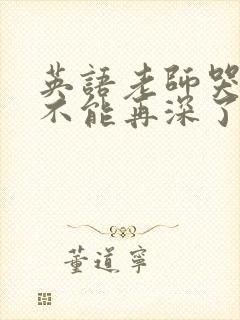 英語老師哭
不能再深了
董道寧